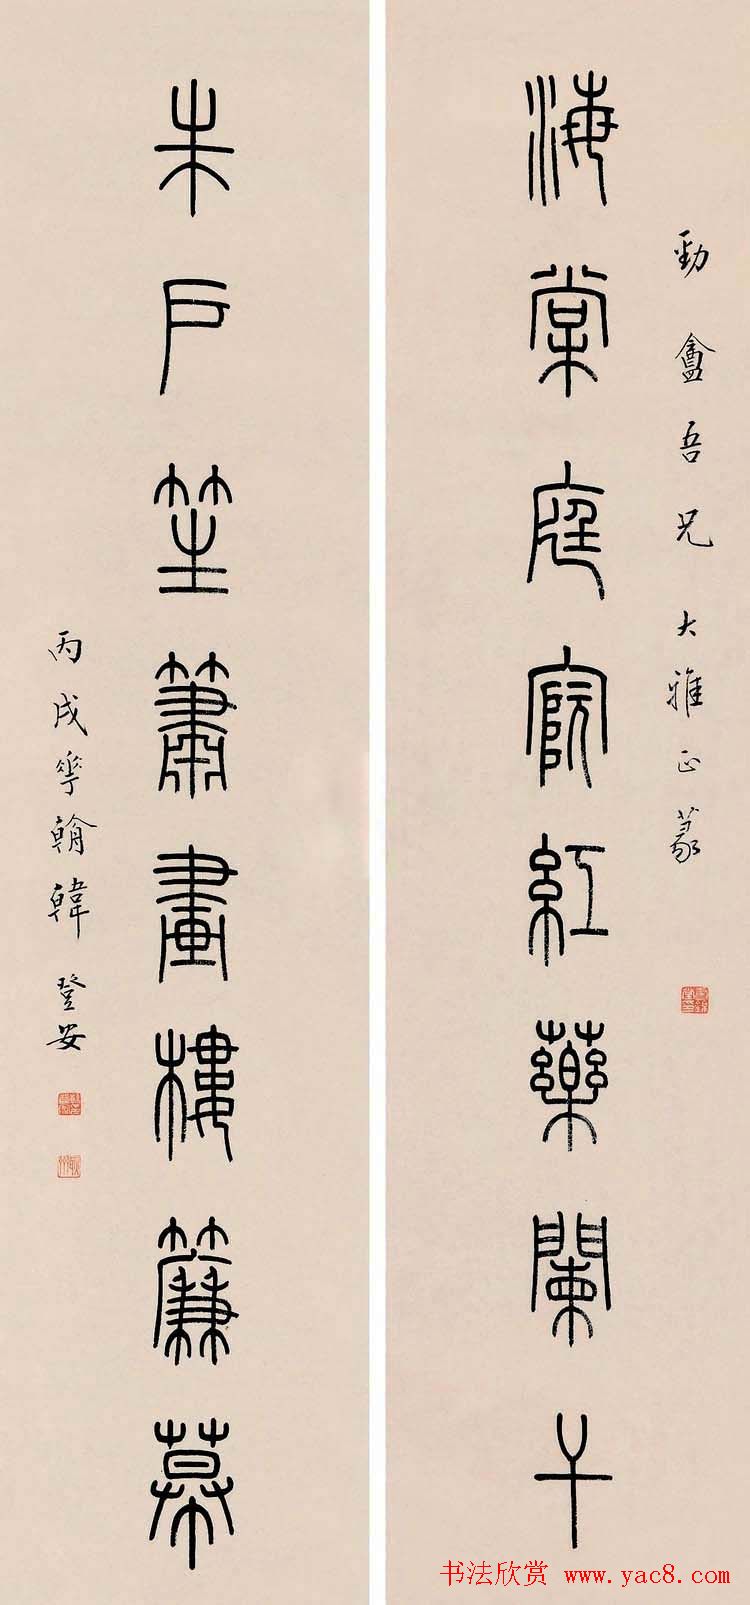 海棠庭院紅藥闌干
勁盦吾兄大雅正篆
朱戶笙簫畫樓簾幕
丙戌華朝韓登安
书法欣赏 www.yac8.com